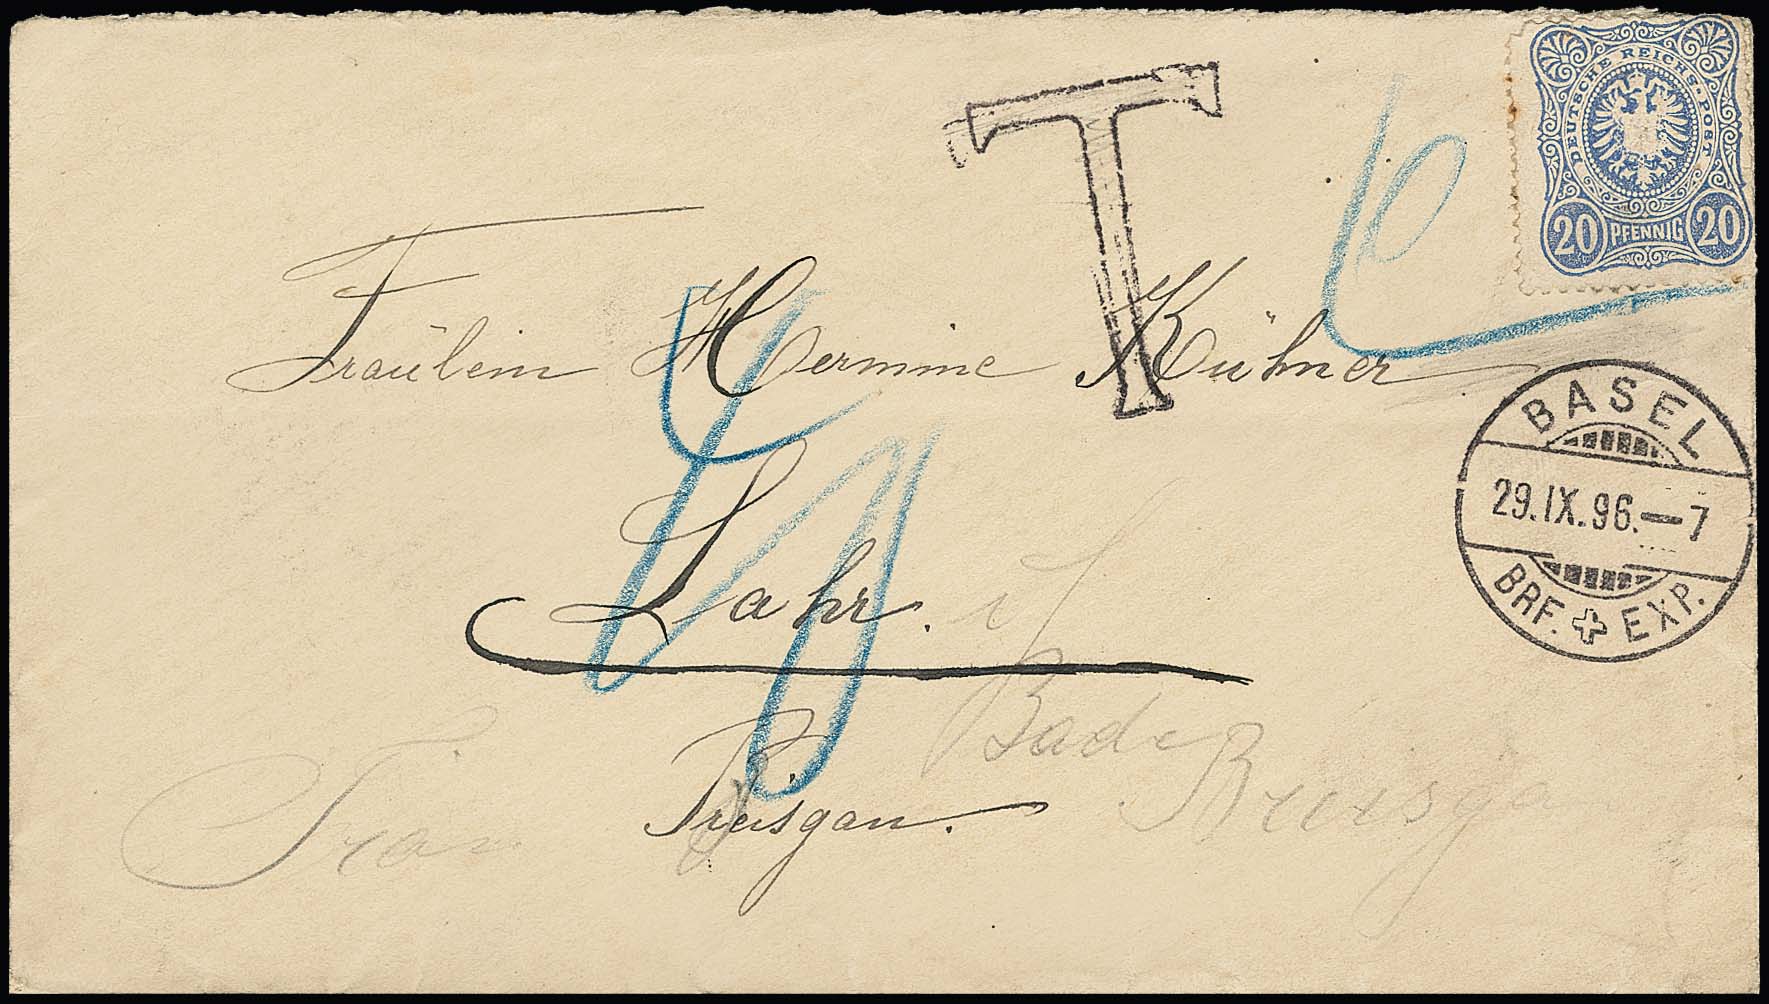 DEUTSCHE REICHS-POST
20 PFENNIG 20
T
Fräulein Hermine Kühner
BASEL
29.IX.96.—7
BRF. EXP.
40
Lahr. i/
Bade
Breisgau.
Fräu
Breisga